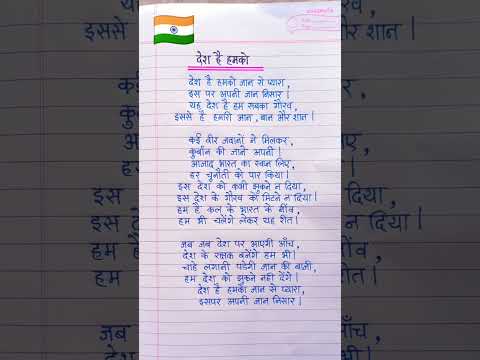 देश है हमको
देश है हमको जान से प्यारा,
इस पर अपनी जान निसार।
यह देश है हम सबका गौरव,
इससे है हमारी आन, बान और शान।
कई वीर जवानों ने मिलकर,
कुर्बान की जानें अपनी।
आजाद भारत का स्वप्न लिए,
हर चुनौती को पार किया।
इस देश को कभी झुकने न दिया,
इस देश के गौरव को मिटने न दिया।
हम हैं कल के भारत के नींव,
हम भी चलेंगे लेकर यह रीत।
जब जब देश पर आएगी आँच,
देश के रक्षक बनेंगे हम भी।
चाहे लगानी पड़ेगी जान की बाजी,
हम देश को झुकने नहीं देंगे।
देश है हमको जान से प्यारा,
इसपर अपनी जान निसार।